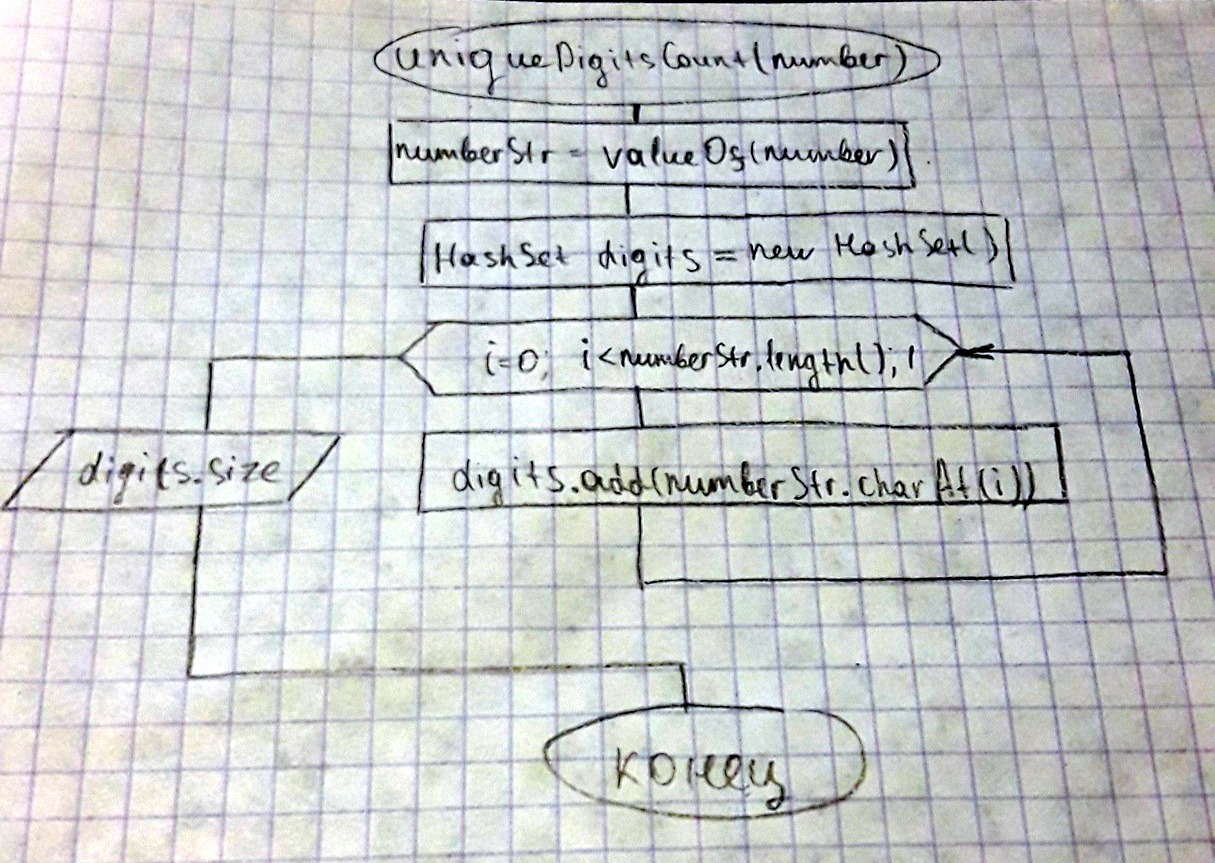 uniqueDigitsCount(number)
numberStr = valueOf(number)
HashSet digits = new HashSet()
i=0; i<numberStr.length(); 1
digits.size
digits.add(numberStr.charAt(i))
конец